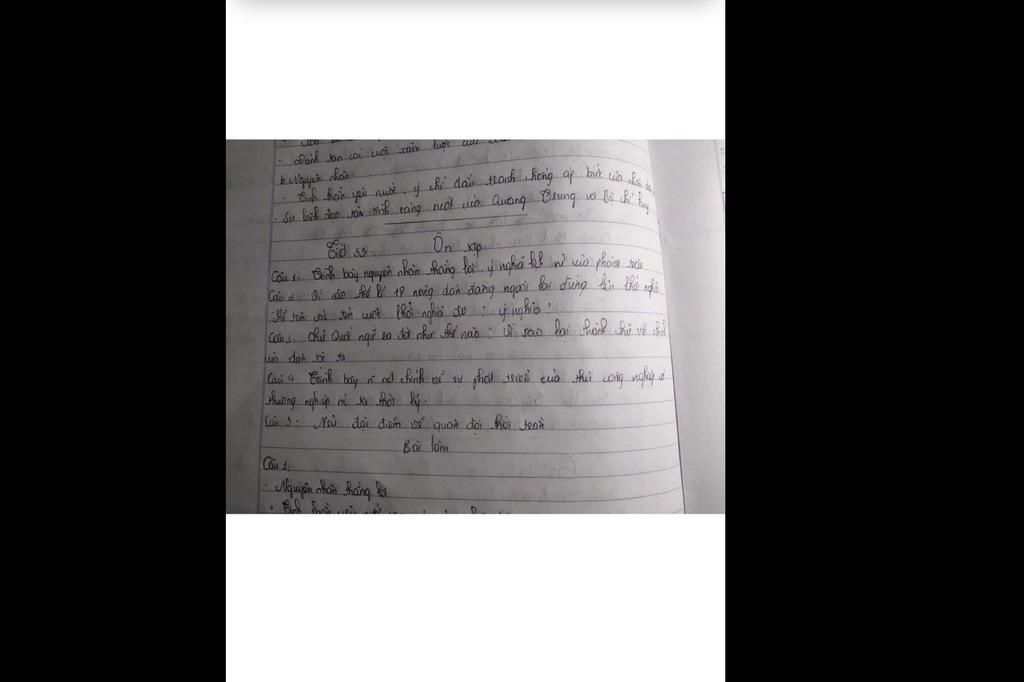 b. Nguyên nhân
- Tinh thần yêu nước, ý chí đấu tranh chống áp bức của nhân dân
- Sự lãnh đạo tài tình sáng suốt của Quang Trung và Bộ chỉ huy
Tiết 55: Ôn tập
Câu 1: Trình bày nguyên nhân thắng lợi, ý nghĩa lịch sử của phong trào
Câu 2: Vì sao thế kỉ 18 nông dân đàng ngoài lại đứng lên khởi nghĩa
khởi nghĩa đó ý nghĩa
Câu 3: chữ Quốc ngữ ra đời như thế nào: Vì sao lại thành chữ viết chính
của dân tộc ta
Câu 4 Trình bày nét chính về sự phát triển của thủ công nghiệp và
thương nghiệp
Câu 5: Nêu đặc điểm về quân đội thời trần
Bài làm
Câu 1:
- Nguyên nhân thắng lợi